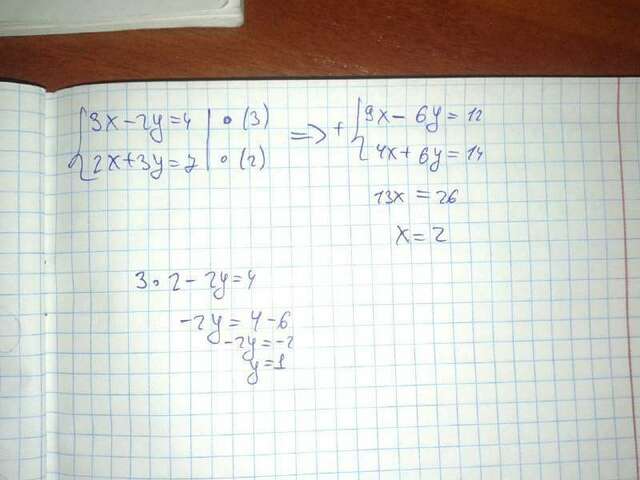 3x-2y=4 | • (3) => + 9x-6y=12
2x+3y=7 | • (2) 4x+6y=14
13x=26
x=2
3•2-2y=4
-2y=4-6
-2y=-2
y=1